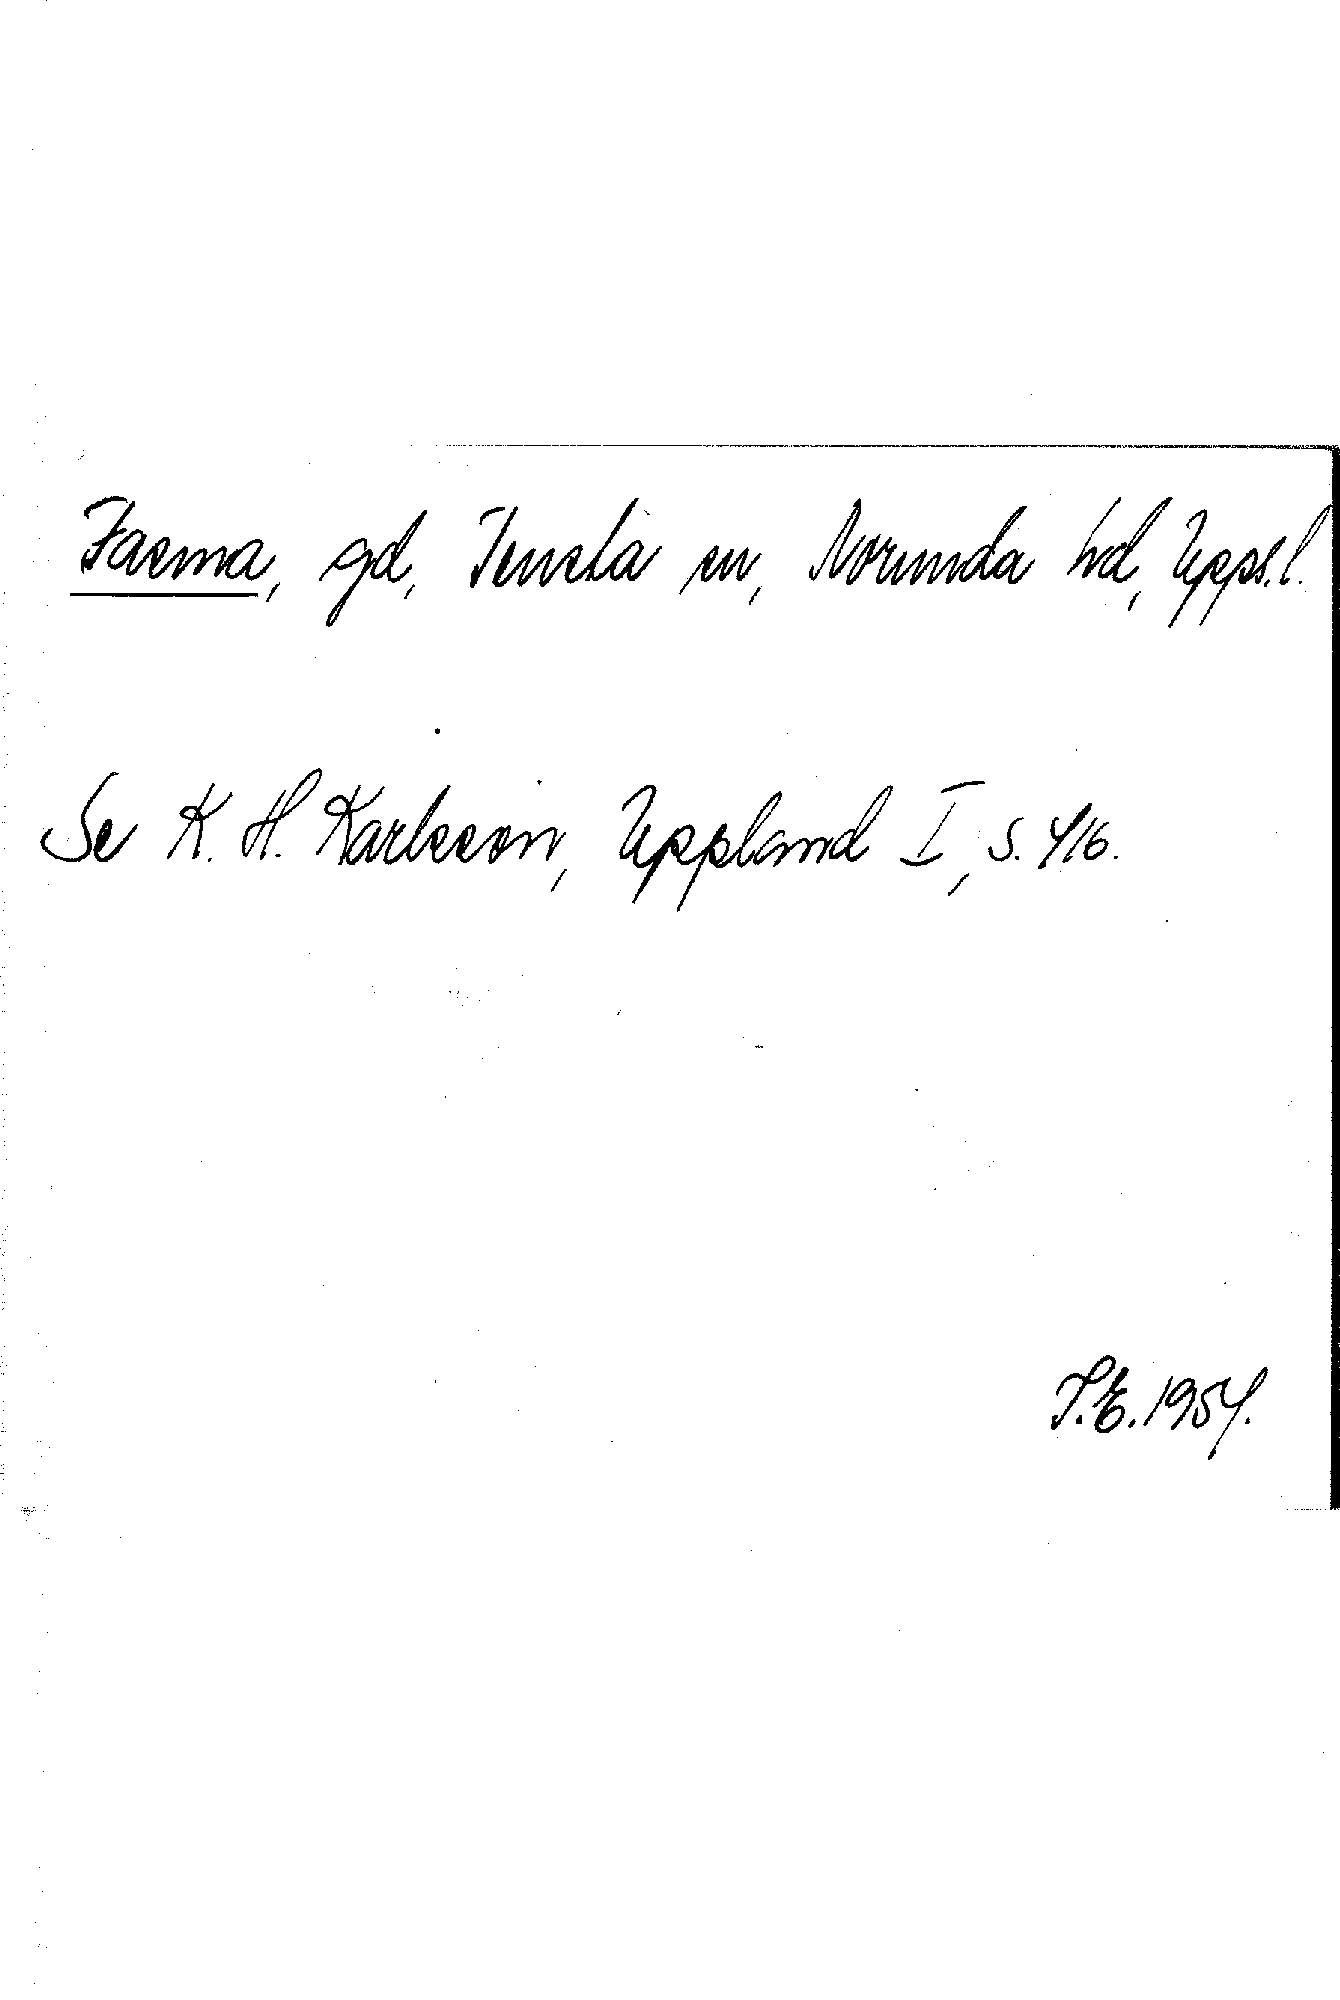 Fasma, gd, Tensta sn, Norunda hd, Upps.l.
Se K. H. Karlsson, Uppland I, s. 416.
I.E. 1954.